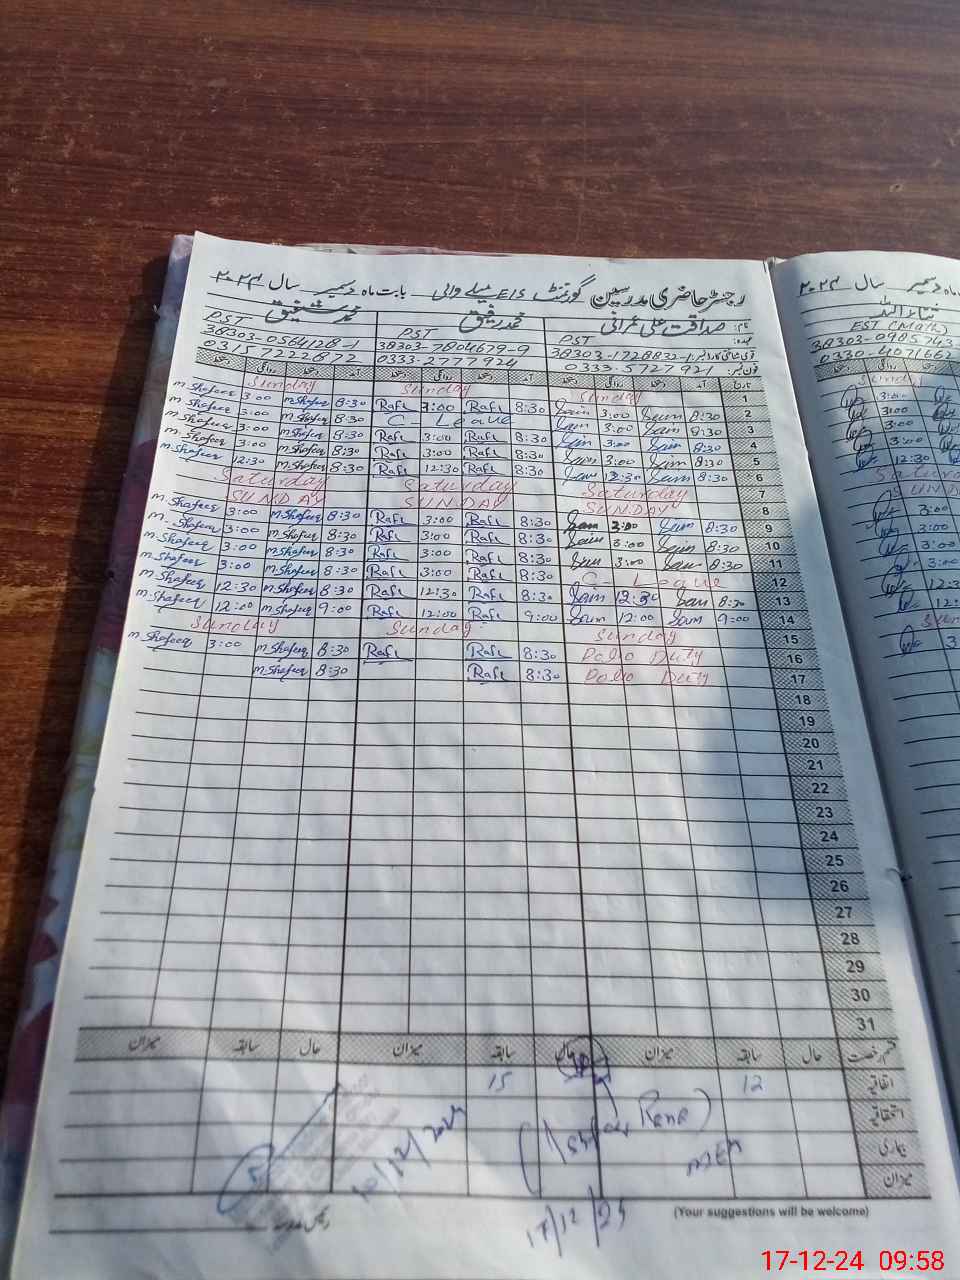 رجسٹر حاضری مدرسین گورنمنٹ E/S میلے والی بابت ماہ دسمبر سال ۲۰۲۴
نام: صداقت علی عمرانی محمد رفیق محمد شفیق
عہدہ: PST PST PST
قومی شناختی کارڈ نمبر: 38303-1728832-1 38303-7804679-9 38303-0564128-1
فون نمبر: 0333-5727921 0333-2777924 03157222872
تاریخ آمد دستخط روانگی دستخط آمد دستخط روانگی دستخط آمد دستخط روانگی دستخط
1 Sunday Sunday Sunday
2 8:30 Saim 3:00 Saim 8:30 Rafi 3:00 Rafi 8:30 M.Shafeeq 3:00 M.Shafeeq
3 8:30 Saim 3:00 Saim C- Leave 8:30 M.Shafeeq 3:00 M.Shafeeq
4 8:30 Saim 3:00 Saim 8:30 Rafi 3:00 Rafi 8:30 M.Shafeeq 3:00 M.Shafeeq
5 8:30 Saim 3:00 Saim 8:30 Rafi 3:00 Rafi 8:30 M.Shafeeq 3:00 M.Shafeeq
6 8:30 Saim 12:30 Saim 8:30 Rafi 12:30 Rafi 8:30 M.Shafeeq 12:30 M.Shafeeq
7 Saturday Saturday Saturday
8 SUNDAY SUNDAY SUNDAY
9 8:30 Saim 3:00 Saim 8:30 Rafi 3:00 Rafi 8:30 M.Shafeeq 3:00 M.Shafeeq
10 8:30 Saim 3:00 Saim 8:30 Rafi 3:00 Rafi 8:30 M.Shafeeq 3:00 M.Shafeeq
11 8:30 Saim 3:00 Saim 8:30 Rafi 3:00 Rafi 8:30 M.Shafeeq 3:00 M.Shafeeq
12 C- Leave 8:30 Rafi 3:00 Rafi 8:30 M.Shafeeq 3:00 M.Shafeeq
13 8:30 Saim 12:30 Saim 8:30 Rafi 12:30 Rafi 8:30 M.Shafeeq 12:30 M.Shafeeq
14 9:00 Saim 12:00 Saim 9:00 Rafi 12:00 Rafi 9:00 M.Shafeeq 12:00 M.Shafeeq
15 Sunday Sunday Sunday
16 Polio Duty 8:30 Rafi Rafi 8:30 M.Shafeeq 3:00 M.Shafeeq
17 Polio Duty 8:30 Rafi 8:30 M.Shafeeq
18
19
20
21
22
23
24
25
26
27
28
29
30
31
قسم رخصت حال سابقہ میزان حال سابقہ میزان حال سابقہ میزان
اتفاقیہ 12 15
استحقاقیہ
بیماری
میزان
10/12/2024
17/12/24
(Your suggestions will be welcome)
دسمبر سال ۲۰۲۴
EST (Math)
38303-0985743
0330-4071662
17-12-24 09:58